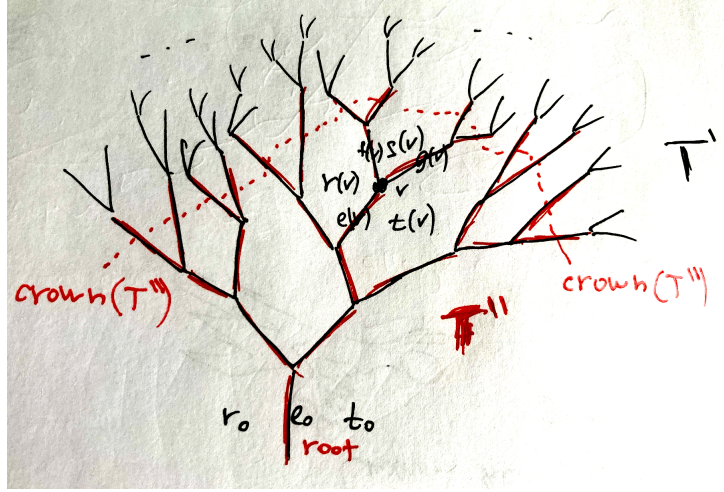 T'
f(v) s(v)
g(v)
r(v)
v
e(v)
t(v)
crown(T'")
crown(T'")
T"
r₀ e₀ t₀
root